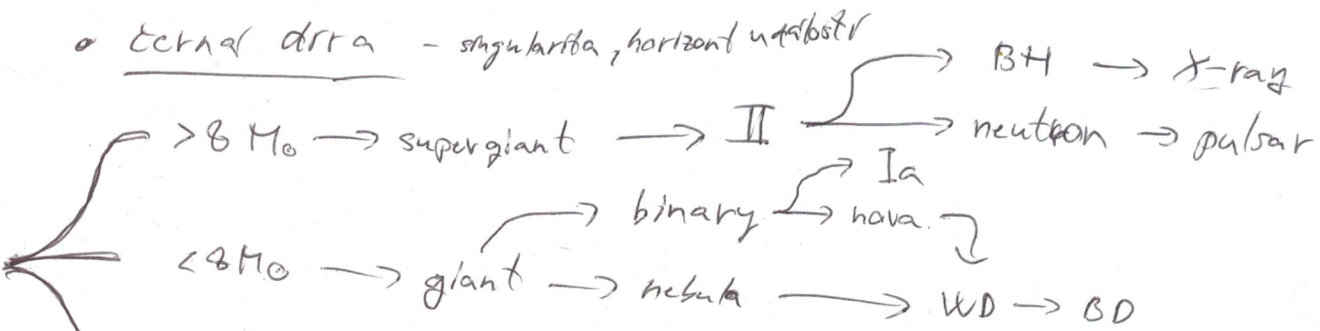 • černá díra - singularita, horizont událostí
BH → X-ray
>8 M☉ → supergiant → II → neutron → pulsar
Ia
binary → nova
<8 M☉ → giant → nebula → WD → BD